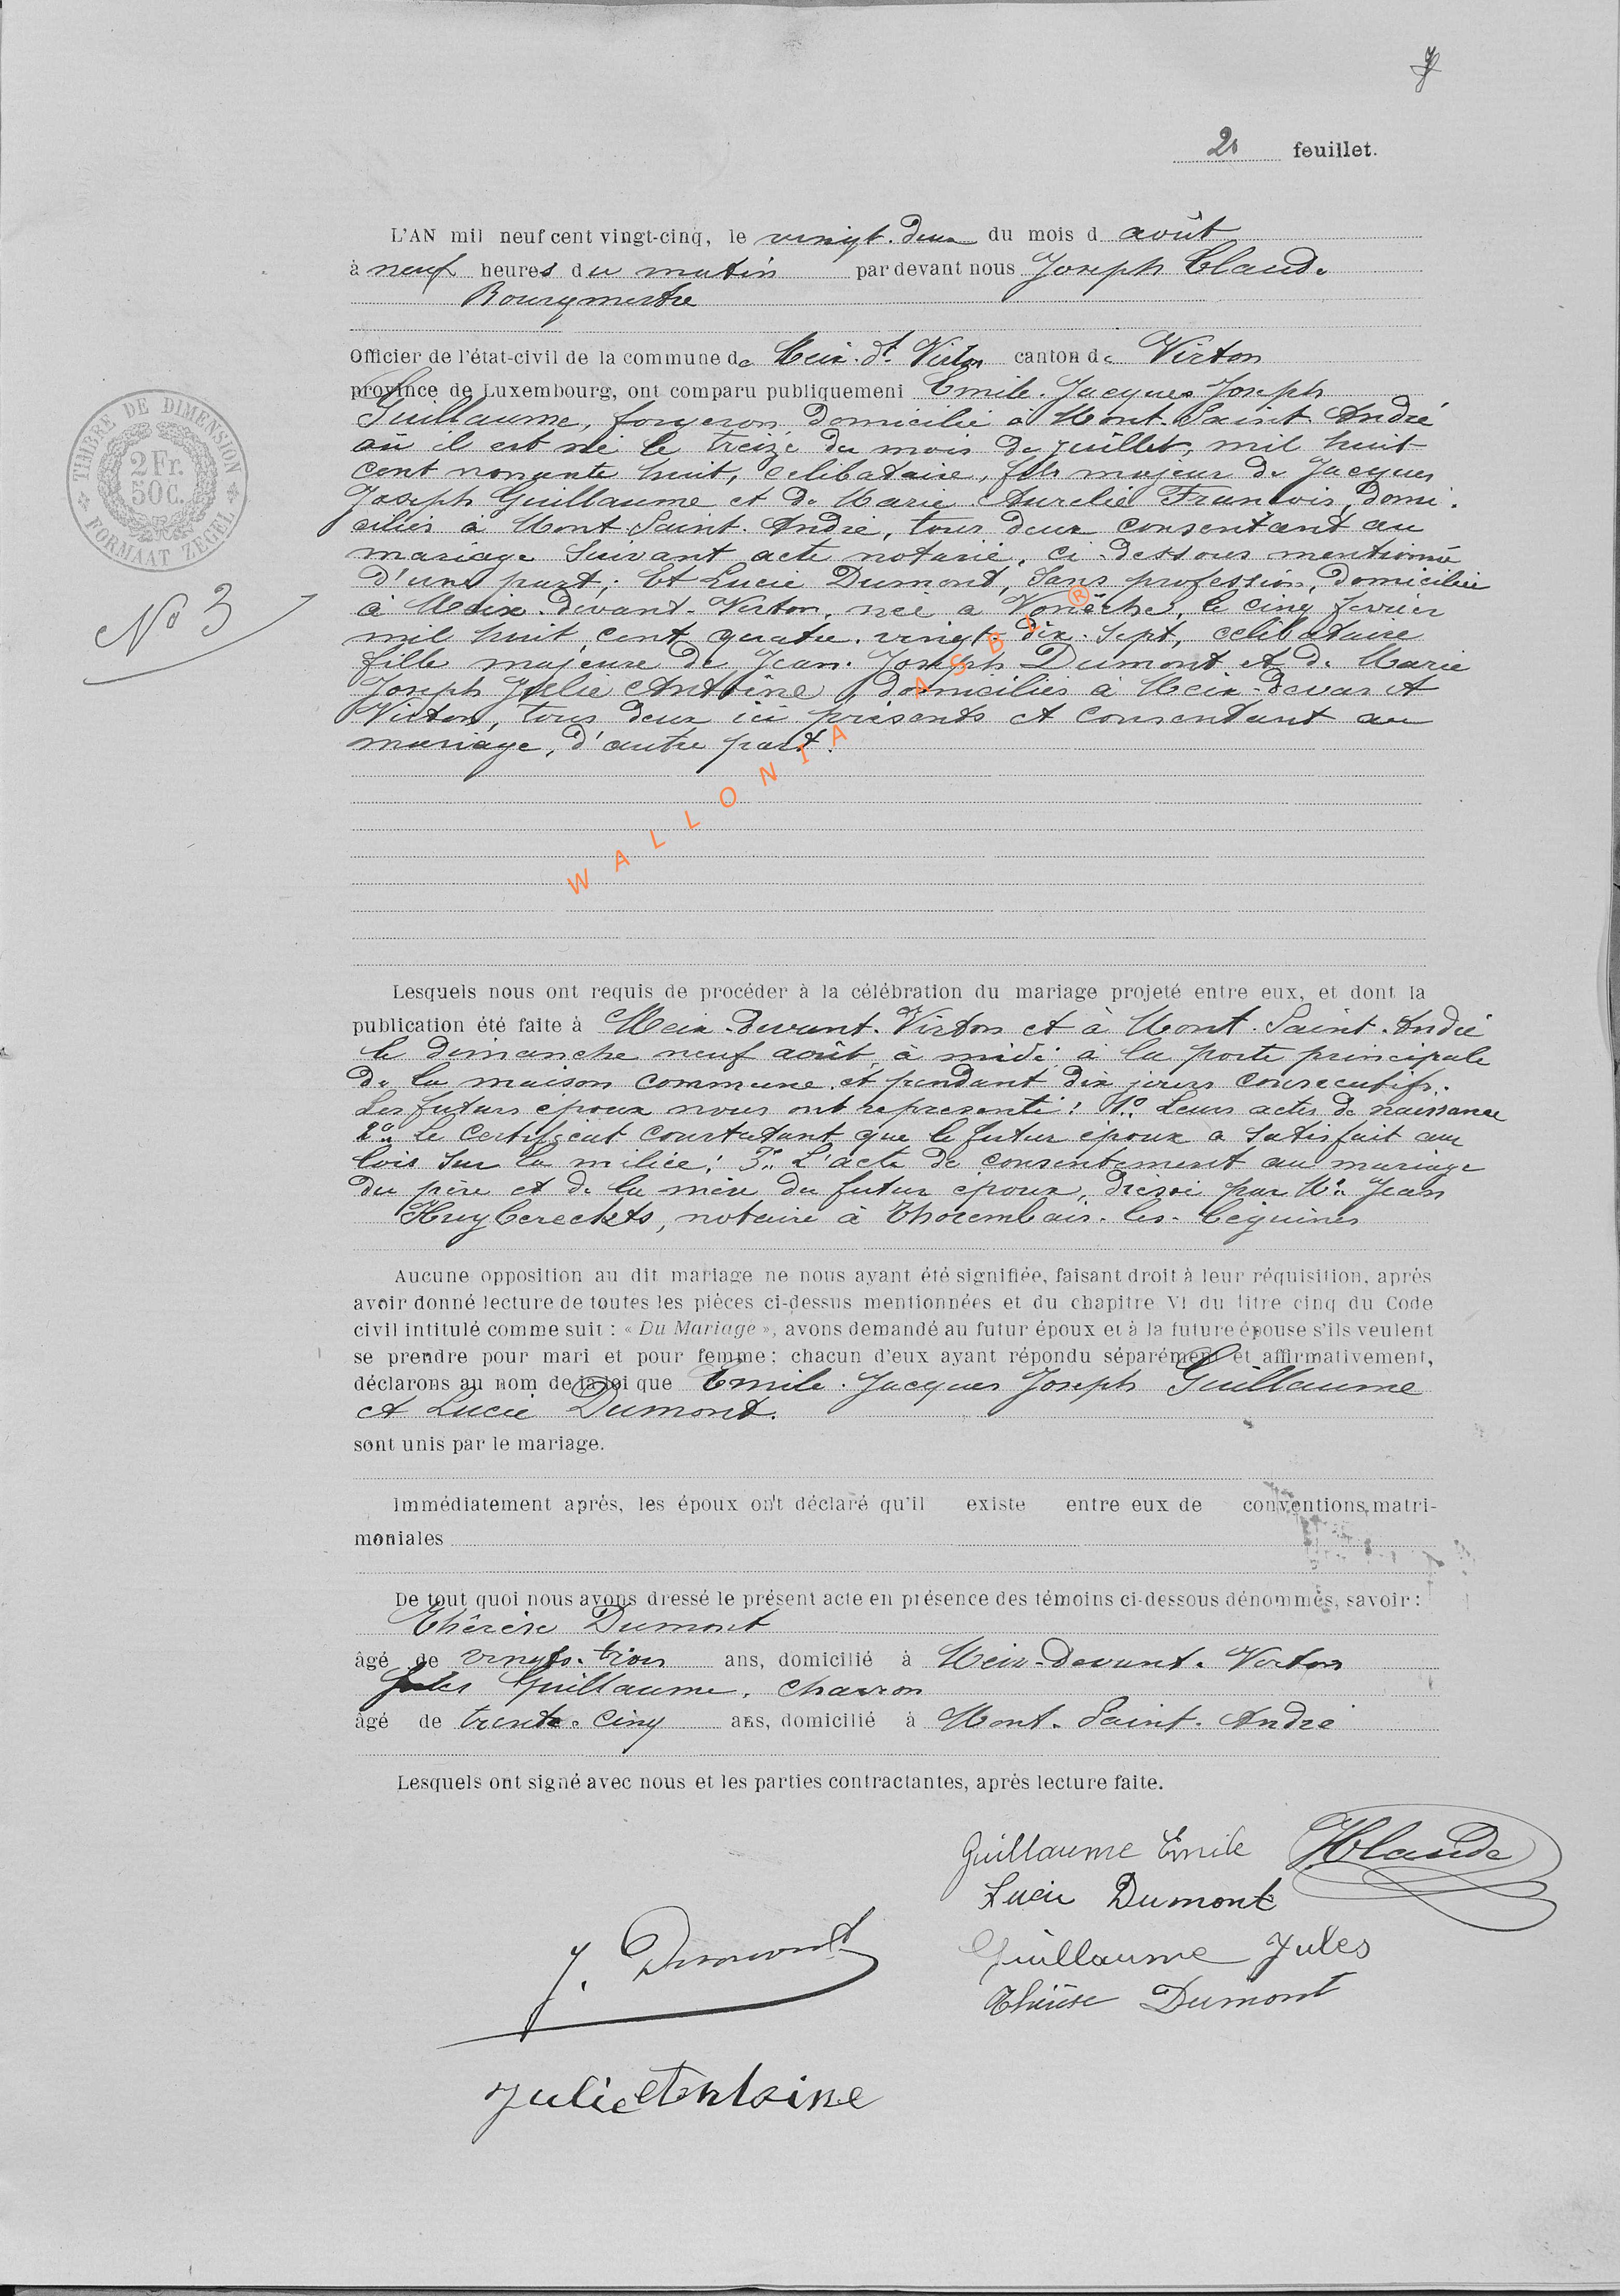 2e feuillet.
L'AN mil neuf cent vingt-cinq, le vingt-deux du mois d août
à neuf heures du matin par devant nous Joseph Claude
Bourgmestre
Officier de l'état-civil de la commune de Meix-dt-Virton canton de Virton
province de Luxembourg, ont comparu publiquement Emile-Jacques Joseph
Guillaume, forgeron domicilié à Mont-Saint-André
où il est né le treize du mois de juillet, mil huit
cent nonante huit, célibataire, fils majeur de Jacques
Joseph Guillaume et de Marie Aurélie François, domi-
ciliés à Mont-Saint-André, tous deux consentant au
mariage suivant acte notarié, ci-dessous mentionné
d'une part; Et Lucie Dumont, sans profession, domiciliée
à Meix-devant-Virton, née à Vonêche, le cinq février
mil huit cent quatre-vingt-dix-sept, célibataire
fille majeure de Jean-Joseph Dumont et de Marie
Joseph Julie Antoine, domiciliés à Meix-devant
Virton, tous deux ici présents et consentant au
mariage, d'autre part.
WALLONIA ASBL ®
TIMBRE DE DIMENSION
2 Fr.
50 C.
FORMAAT ZEGEL
No 3
Lesquels nous ont requis de procéder à la célébration du mariage projeté entre eux, et dont la
publication été faite à Meix-devant-Virton et à Mont-Saint-André
le dimanche neuf août à midi à la porte principale
de la maison commune et pendant dix jours consécutifs.
Les futurs époux nous ont représenté: 1o Leurs actes de naissance
2o Le certificat constatant que le futur époux a satisfait aux
lois sur la milice: 3o L'acte de consentement au mariage
du père et de la mère du futur époux, dressé par Me Jean
Huyberechts, notaire à Thorembais-les-Béguines
Aucune opposition au dit mariage ne nous ayant été signifiée, faisant droit à leur réquisition, après
avoir donné lecture de toutes les pièces ci-dessus mentionnées et du chapitre VI du titre cinq du Code
civil intitulé comme suit : « Du Mariage », avons demandé au futur époux et à la future épouse s'ils veulent
se prendre pour mari et pour femme; chacun d'eux ayant répondu séparément et affirmativement,
déclarons au nom de la loi que Emile-Jacques Joseph Guillaume
et Lucie Dumont.
sont unis par le mariage.
Immédiatement après, les époux ont déclaré qu'il existe entre eux de conventions matri-
moniales
De tout quoi nous avons dressé le présent acte en présence des témoins ci-dessous dénommés, savoir :
Thérèse Dumont
âgé de vingt-trois ans, domicilié à Meix-devant-Virton
Jules Guillaume, charron
âgé de trente-cinq ans, domicilié à Mont-Saint-André
Lesquels ont signé avec nous et les parties contractantes, après lecture faite.
Guillaume Emile JClaude
Lucie Dumont
Guillaume Jules
J. Dumont
Thérèse Dumont
Julie Antoine